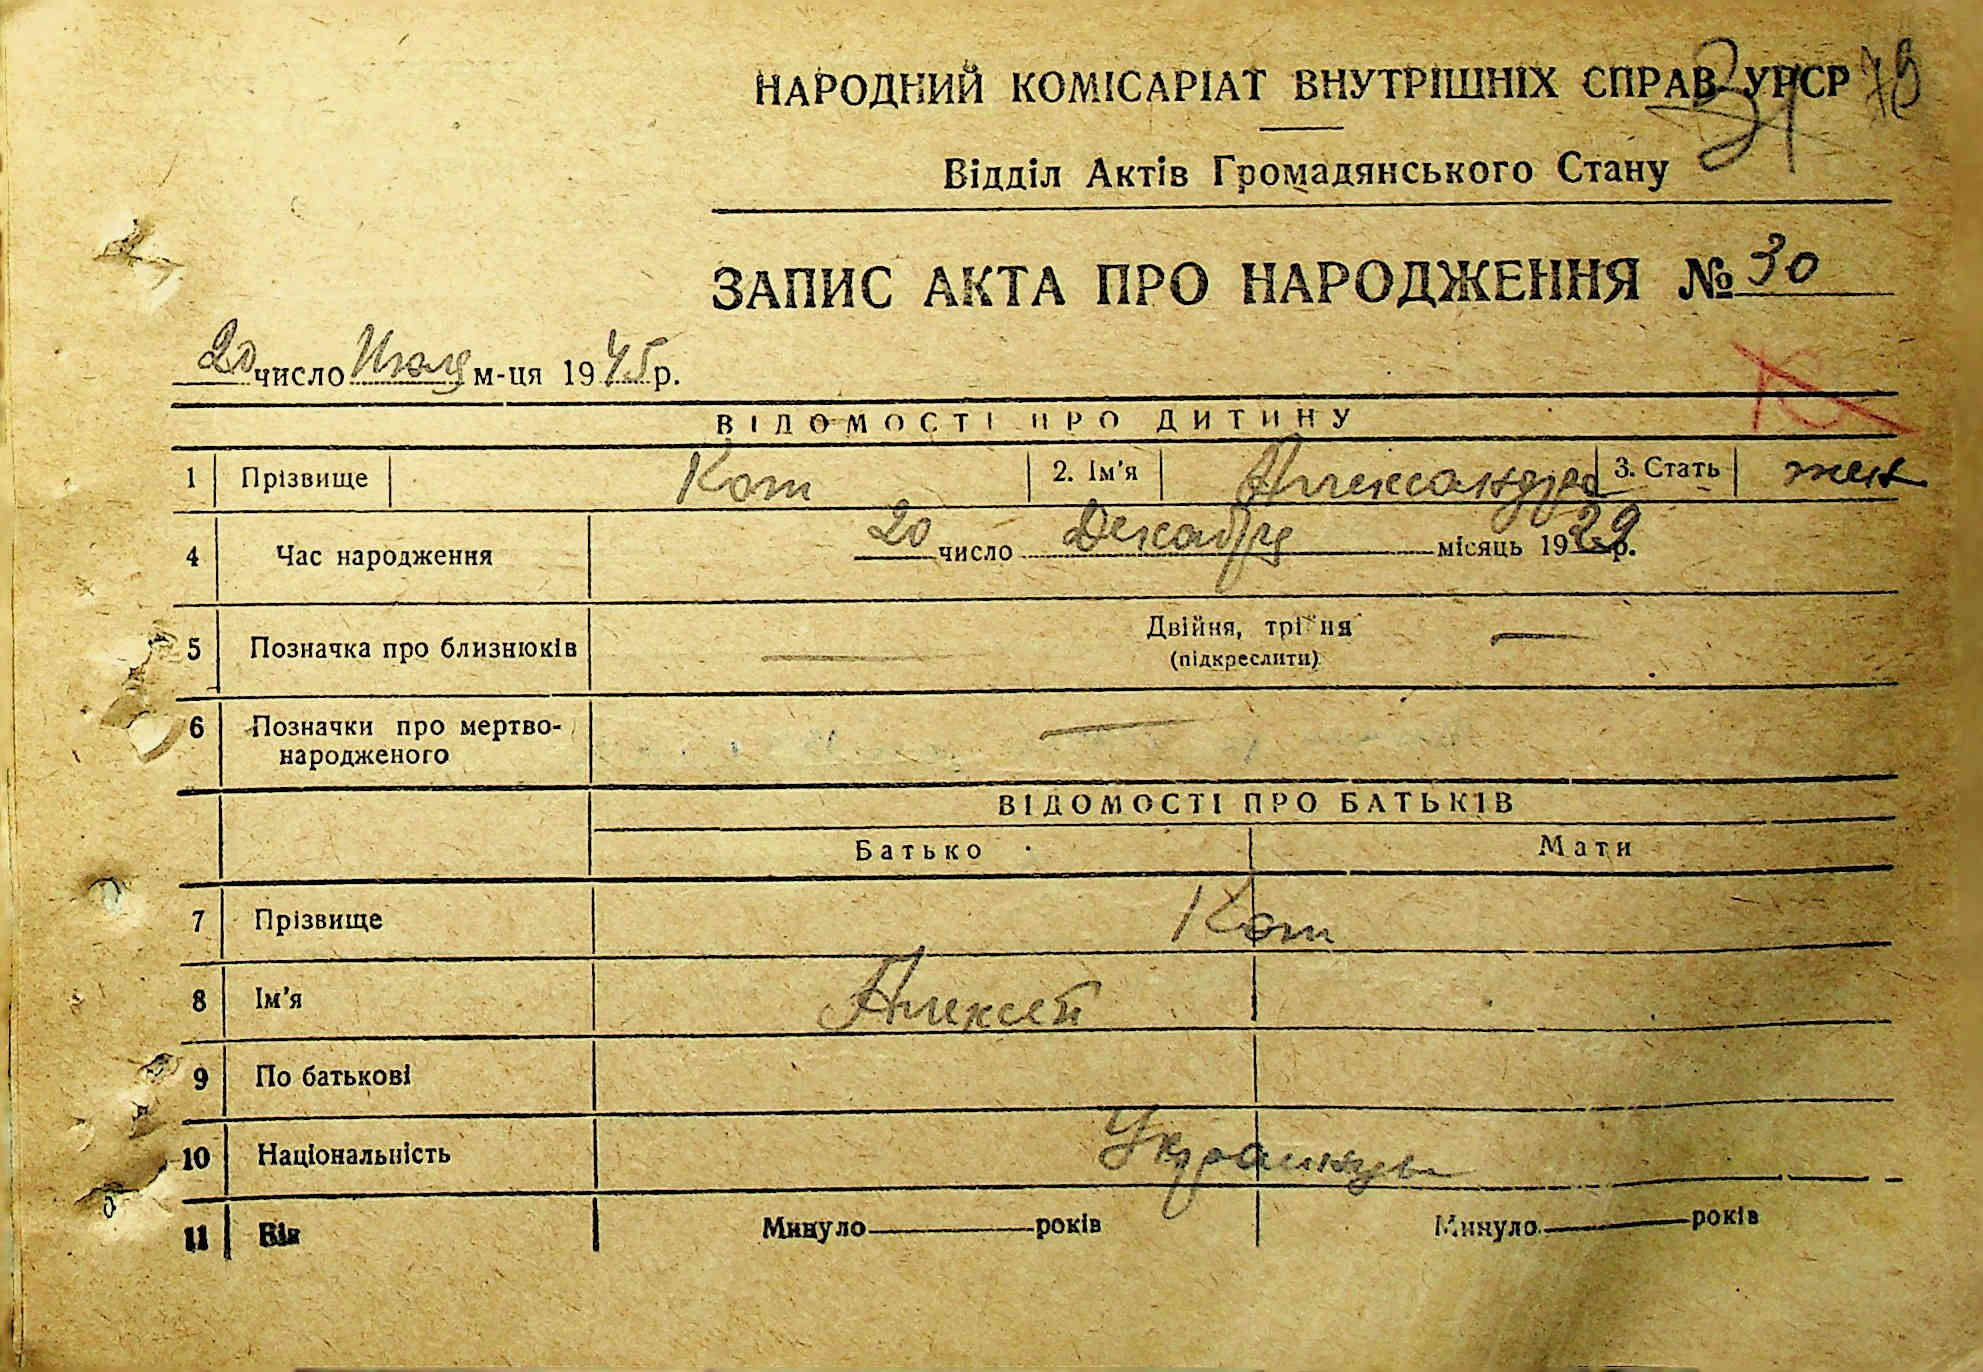 79
31
НАРОДНИЙ КОМІСАРІАТ ВНУТРІШНІХ СПРАВ УРСР
Відділ Актів Громадянського Стану
ЗАПИС АКТА ПРО НАРОДЖЕННЯ № 30
20 число Июля м-ця 1945 р.
ВІДОМОСТІ ПРО ДИТИНУ
1 Прізвище Кот 2. Ім'я Александра 3. Стать жен
4 Час народження 20 число Декабря місяць 1929 р.
5 Позначка про близнюків — Двійня, трійня —
(підкреслити)
6 Позначки про мертво-
народженого —
ВІДОМОСТІ ПРО БАТЬКІВ
Батько Мати
7 Прізвище Кот
8 Ім'я Алексей
9 По батькові
10 Національність Украинцы
11 Вік Минуло — років Минуло — років